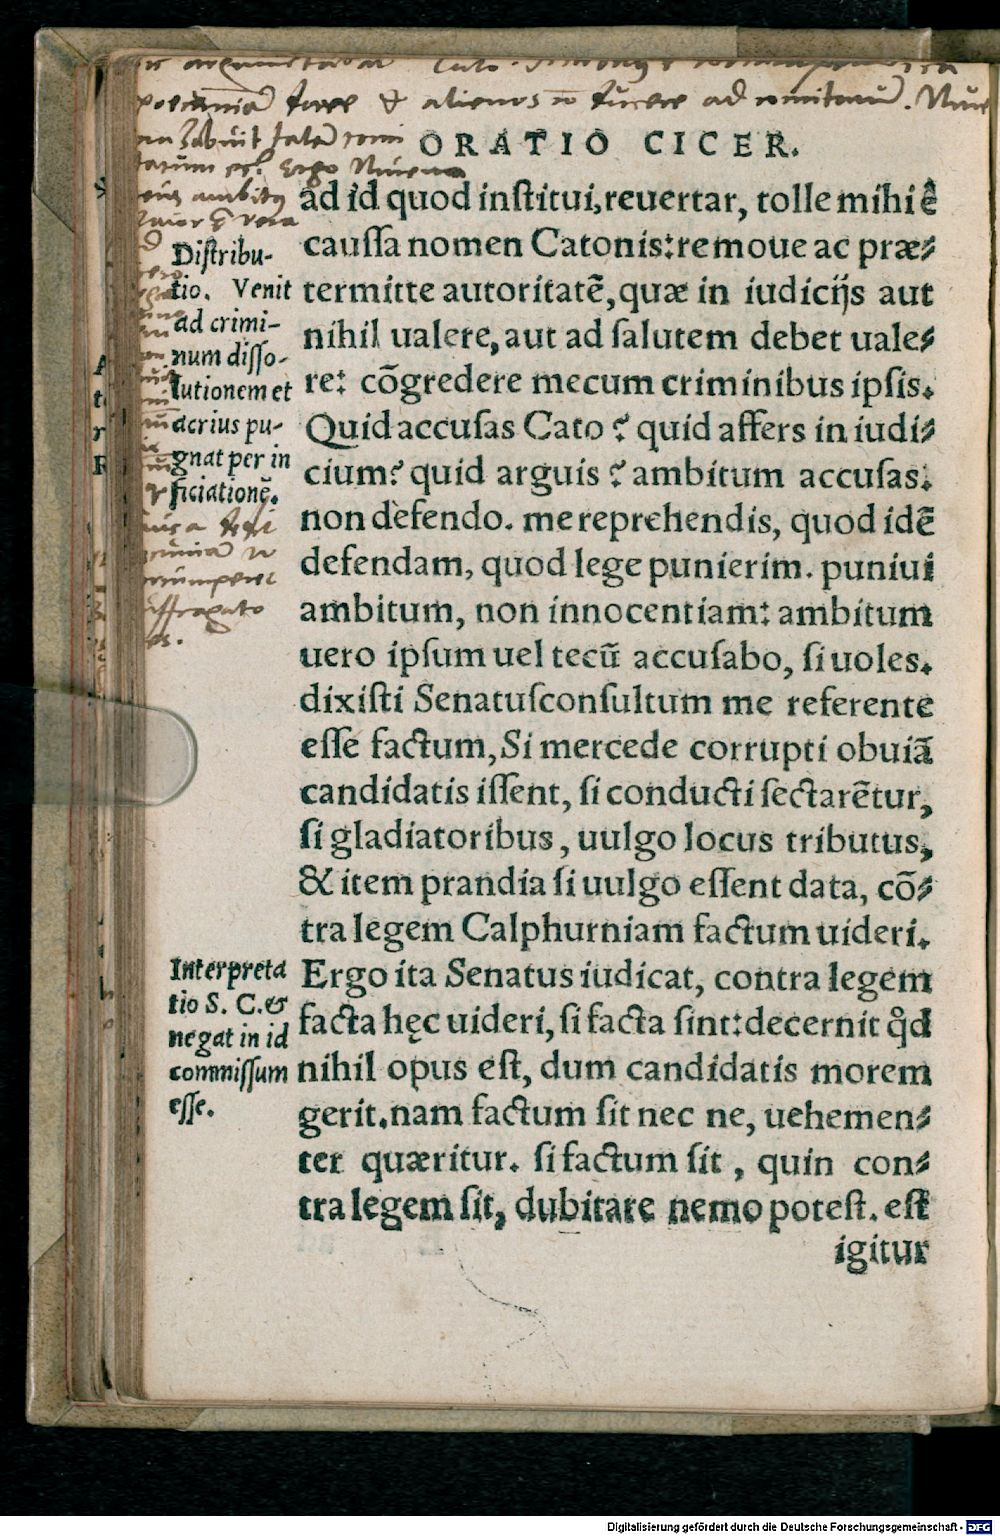 ORATIO CICER.
ad id quod inſtitui, reuertar, tolle mihi ē
cauſſa nomen Catonis: remoue ac præ-
termitte autoritatē, quæ in iudicijs aut
nihil ualere, aut ad ſalutem debet uale-
re: cōgredere mecum criminibus ipſis.
Quid accuſas Cato? quid affers in iudi-
cium? quid arguis? ambitum accuſas:
non defendo. me reprehendis, quod idē
defendam, quod lege punierim. puniui
ambitum, non innocentiam: ambitum
uero ipſum uel tecū accuſabo, ſi uoles.
dixiſti Senatuſconſultum me referente
eſſe factum, Si mercede corrupti obuiā
candidatis iſſent, ſi conducti ſectarētur,
ſi gladiatoribus, uulgo locus tributus,
& item prandia ſi uulgo eſſent data, cō-
tra legem Calphurniam factum uideri.
Ergo ita Senatus iudicat, contra legem
facta hęc uideri, ſi facta ſint: decernit qd̛
nihil opus eſt, dum candidatis morem
gerit. nam factum ſit nec ne, uehemen-
ter quæritur. ſi factum ſit, quin con-
tra legem ſit, dubitare nemo poteſt. eſt
igitur
Diſtribu-
tio. Venit
ad crimi-
num diſſo-
lutionem et
acrius pu-
gnat per in
ficiationē.
Interpreta
tio S. C. &
negat in id
commiſſum
eſſe.
Digitalisierung gefördert durch die Deutsche Forschungsgemeinschaft - DFG